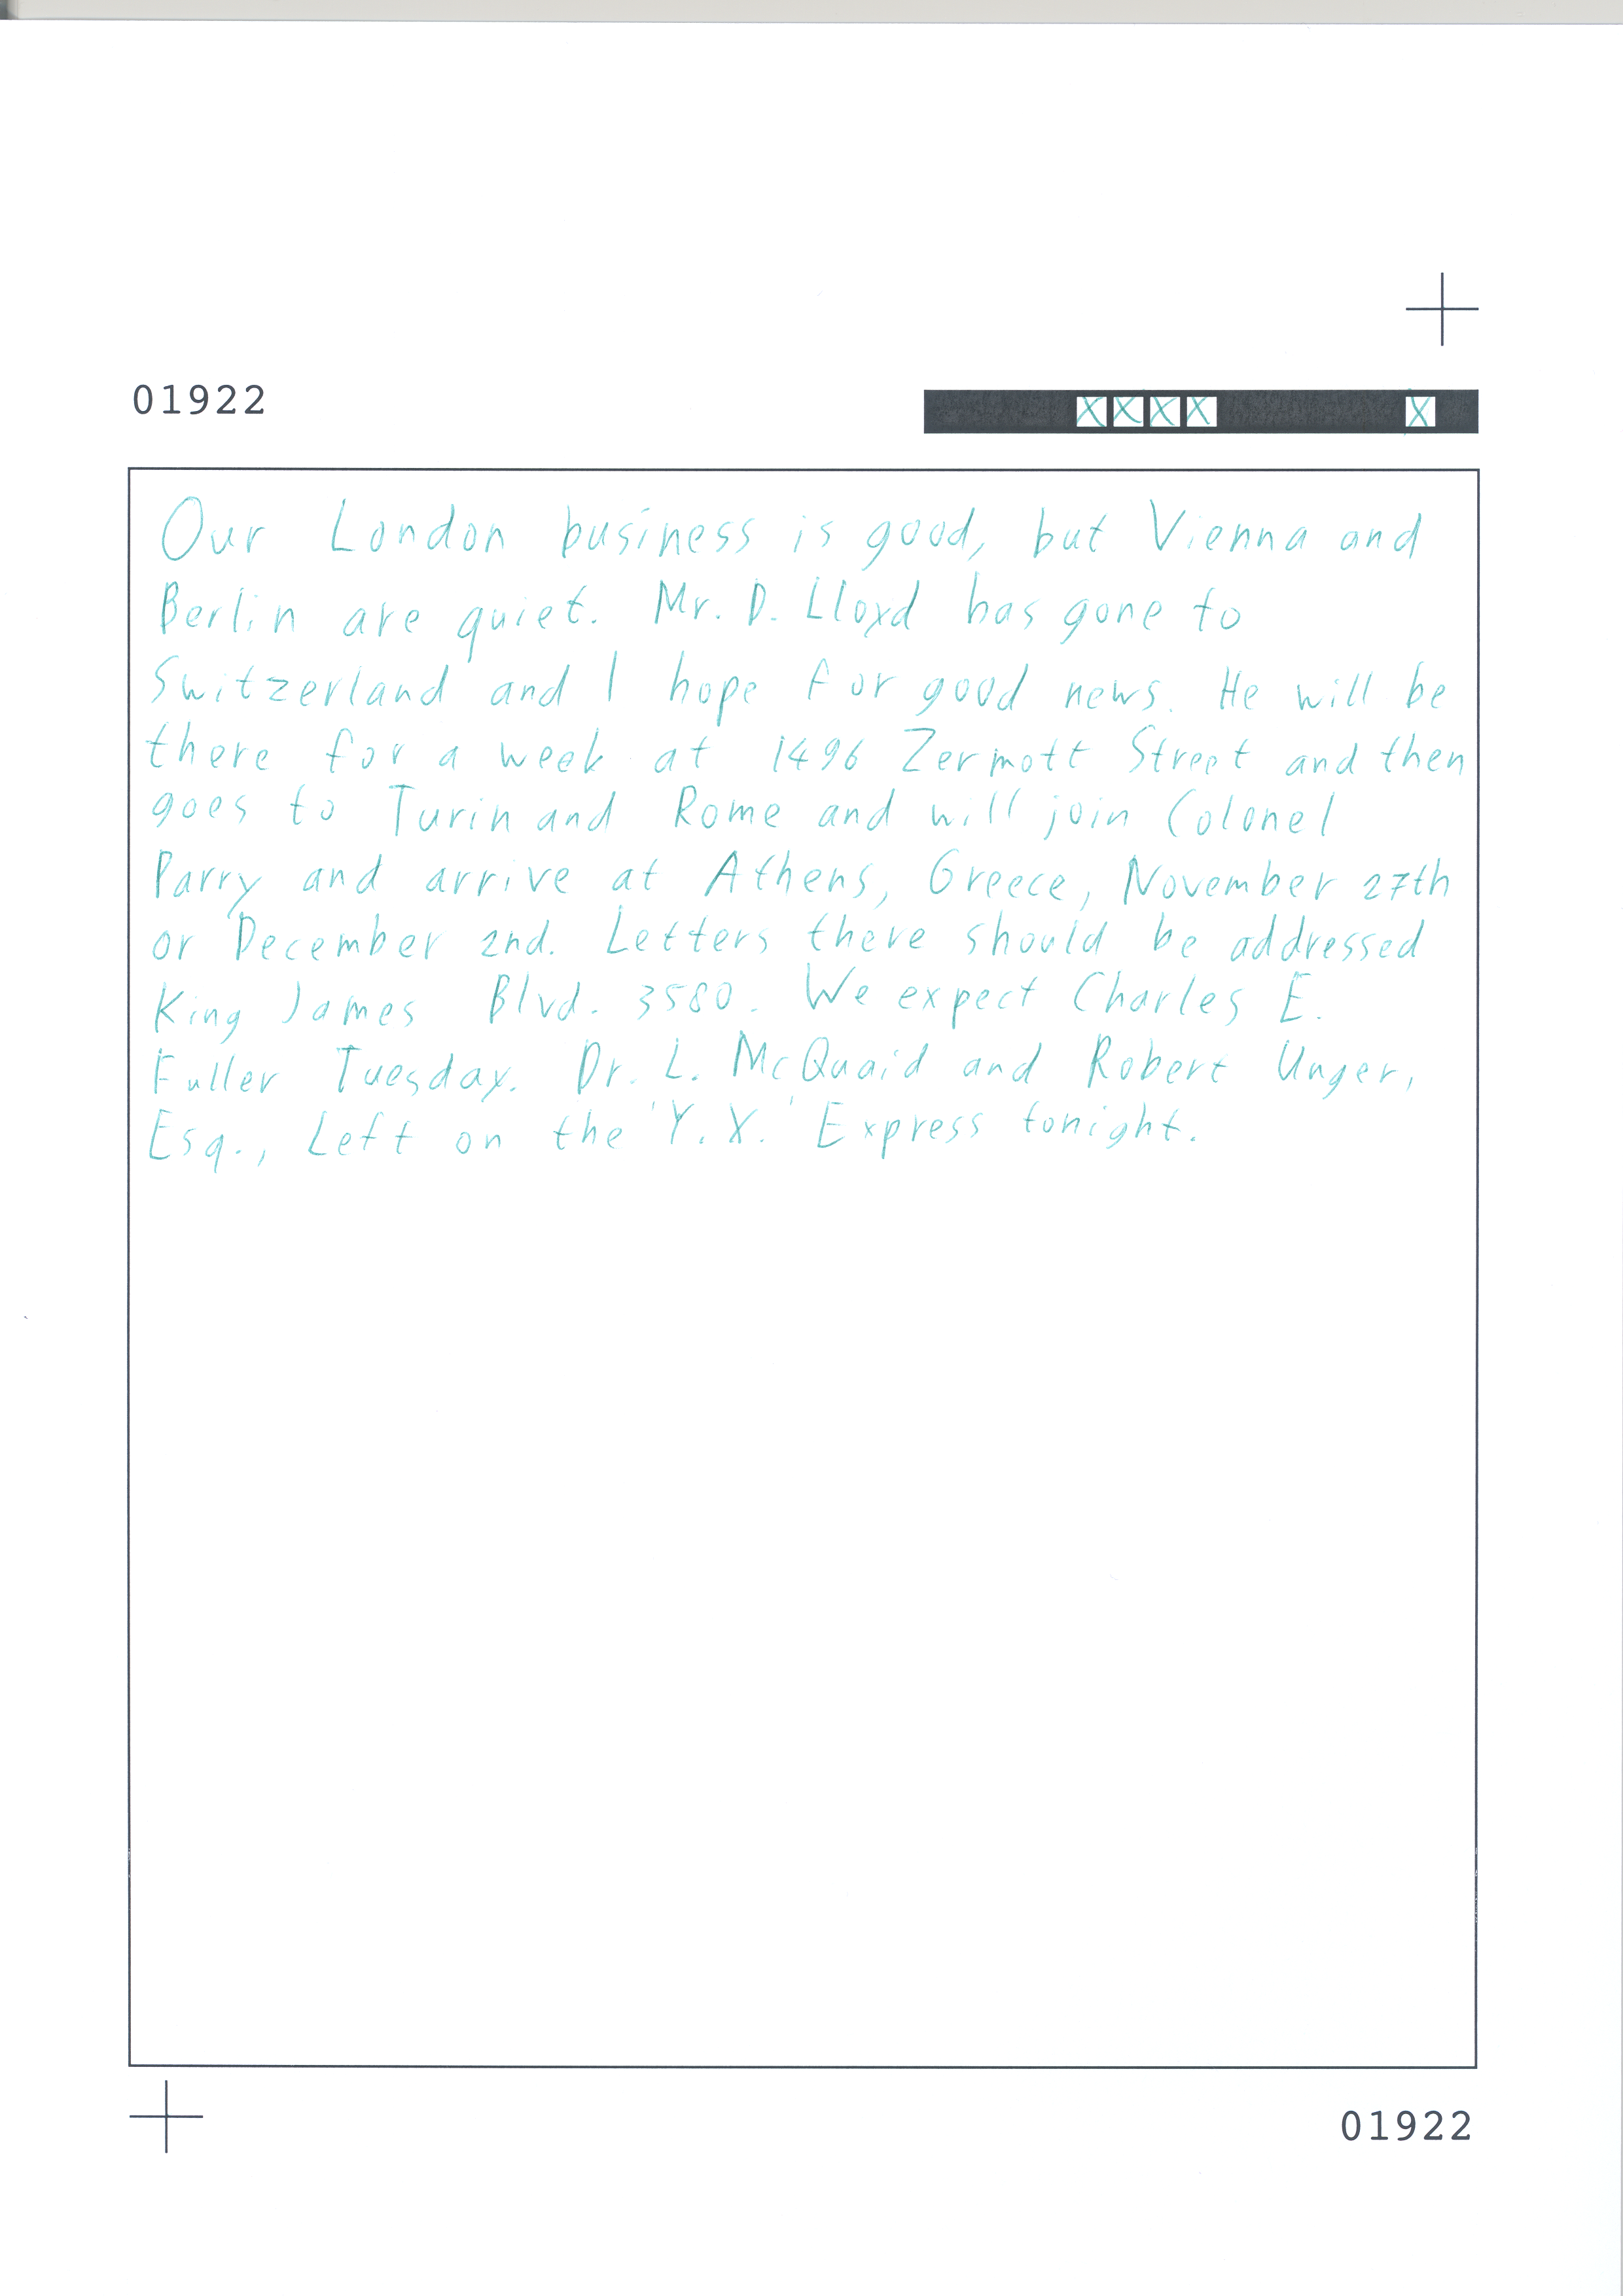 01922
XXXX X
Our London business is good, but Vienna and
Berlin are quiet. Mr. D. Lloyd has gone to
Switzerland and I hope for good news. He will be
there for a week at 1496 Zermott Street and then
goes to Turin and Rome and will join Colonel
Parry and arrive at Athens, Greece, November 27th
or December 2nd. Letters there should be addressed
King James Blvd. 3580. We expect Charles E.
Fuller Tuesday. Dr. L. McQuaid and Robert Unger,
Esq., Left on the 'Y.X.' Express tonight.
01922